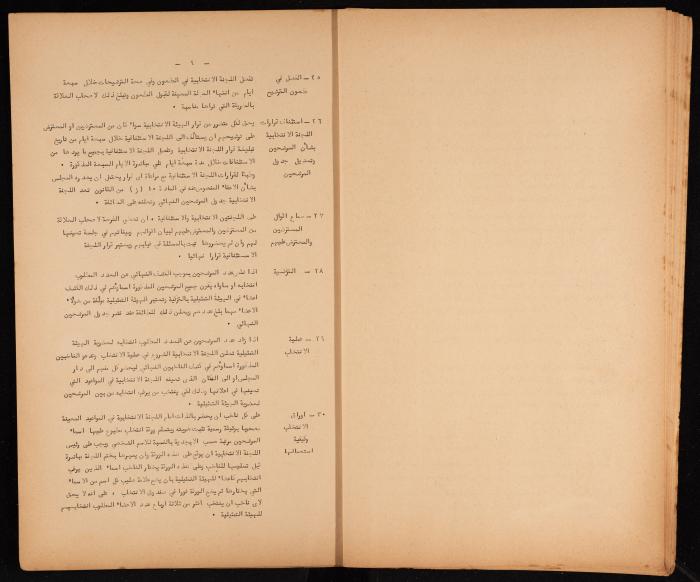 - ٦ -
٢٥ - الفصل في طعون الترشيح
تفصل اللجنة الانتخابية في الطعون وفي صحة الترشيحات خلال سبعة
ايام من انتهاء المدة المعينة لقبول الطعون وتبلغ ذلك لاصحاب العلاقة
بالطريقة التي تراها مناسبة ٠
٢٦ - استئناف قرارات اللجنة الانتخابية بشأن المرشحين وتعديل جدول المرشحين
يحق لكل متضرر من قرار الهيئة الانتخابية سواء كان من المعترضين او المعترض
على ترشيحهم ان يستأنف الى اللجنة الاستئنافية خلال سبعة ايام من تاريخ
تبليغه قرار اللجنة الانتخابية وتفصل اللجنة الاستئنافية بجميع ما يردها من
الاستئنافات خلال مدة سبعة ايام تلي مباشرة الايام السبعة المذكورة ٠
لقرارات اللجنة الاستئنافية مع مراعاة اي قرار يحتمل ان يصدره المجلس
بشأن الاعضاء المنصوص عنه في المادة ١٥ ( ز ) من القانون تعد اللجنة
الانتخابية جدول المرشحين النهائي وتعلنه على الطائفة ٠
٢٧ - سماع اقوال المعترضين والمعترض عليهم
على اللجنتين الانتخابية والاستئنافية ، ان تعطي الفرصة لاصحاب العلاقة
من المعترضين والمعترض عليهم لبيان اقوالهم في جلسة تعينها
لهم وان لم يحضروها تبت بالمسألة في غيابهم ويعتبر قرار اللجنة
الاستئنافية قرارا نهائيا ٠
٢٨ - التزكية
اذا نقص عدد المرشحين بموجب الكشف النهائي عن العدد المطلوب
انتخابه او ساواه يكون جميع المرشحين المذكورة اسماؤهم في ذلك الكشف
اعضاء في الهيئة التمثيلية بالتزكية وتعتبر الهيئة التمثيلية مؤلفة من هؤلاء
الاعضاء مهما بلغ عددهم ويعلن ذلك للطائفة عند نشر جدول المرشحين
النهائي ٠
٢٩ - عملية الانتخاب
اذا زاد عدد المرشحين عن العدد المطلوب انتخابه لعضوية الهيئة
التمثيلية تعلن اللجنة الانتخابية الشروع في عملية الانتخاب وتدعو الناخبين
المذكورة اسماؤهم في كشف الناخبين النهائي ليحضر كل منهم الى دار
المجلس او الى المكان الذي تعينه اللجنة الانتخابية في المواعيد التي
تعينها في اعلانها وذلك لكي ينتخب من يرغب انتخابه من بين المرشحين
لعضوية الهيئة التمثيلية ٠
٣٠ - اوراق الانتخاب وكيفية استعمالها
على كل ناخب ان يحضر بالذات امام اللجنة الانتخابية في المواعيد المعينة
مصحوبا بوثيقة رسمية تثبت هويته ويتسلم ورقة انتخاب مطبوع عليها اسماء
المرشحين مرتبة حسب الابجدية بالنسبة للاسم الشخصي ويجب على رئيس
اللجنة الانتخابية ان يوقع على هذه الورقة وان يمهرها بختم اللجنة مباشرة
قبل تسليمها للناخب وعلى هذه الورقة يختار الناخب اسماء الذين يرغب
انتخابهم كاعضاء للهيئة التمثيلية بان يضع علامة صليب قبل اسم من الاسماء
التي يختارها ثم يضع الورقة فورا في صندوق الانتخاب ، على انه لا يحق
لاي ناخب ان ينتخب اكثر من ثلاثة ارباع عدد الاعضاء المطلوب انتخابهم
للهيئة التمثيلية ٠